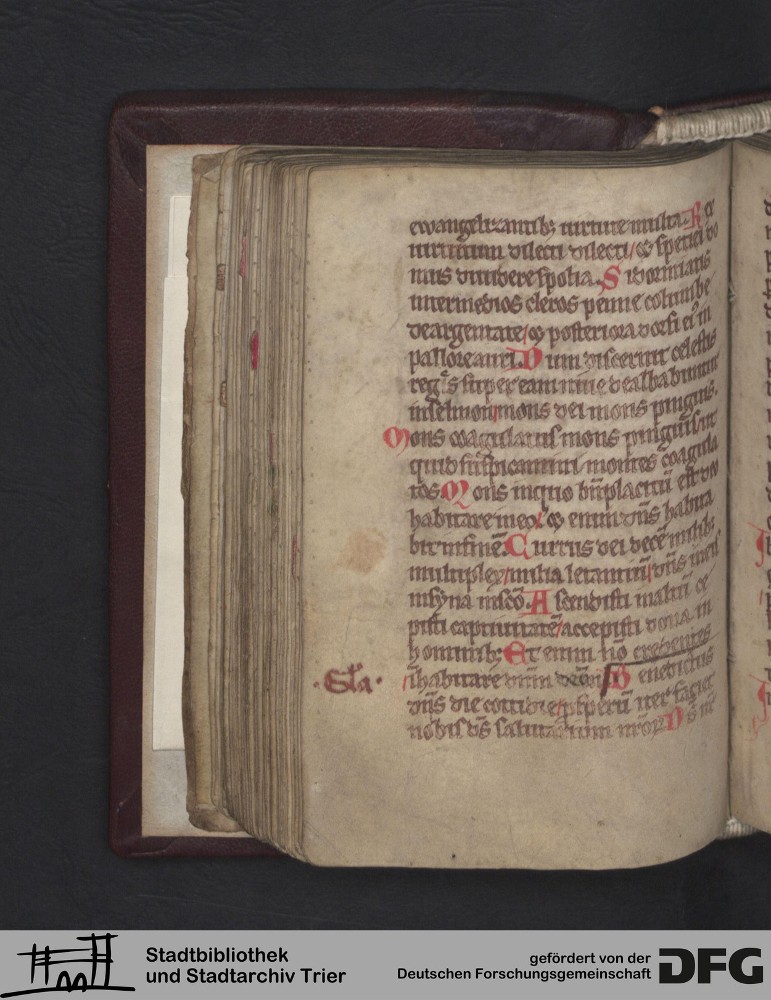 ewangelizantibꝫ uirtute multa. Rex
uirtutum dilecti dilecti / et speciei do
mus diuidere spolia. Si dormiatis
intermedios cleros penne columbe
deargentate / et posteriora dorsi eiꝰ in
pallore auri. Dum discernit celestis
reges super eam niue dealbabuntur
inselmon / mons dei mons pinguis.
Mons coagulatus mons pinguis / ut
quid suspicamini montes coagula
tos Mons inquo bn̄placitū est deo
habitare in eo / et enim dn̄s habita
bit in finē. Currus dei decē milibꝫ
multiplex / milia letantiū / dn̄s in eis
insyna in sc̄o. Ascendisti in altū ce
pisti captiuitatē / accepisti dona in
hominibꝫ Et enim nō credentes
·Gl̄a· īhabitare dn̄m deum Benedictus
dn̄s die cottidie / ꝓsperū iter faciet
nobis ds̄ salutarium nr̄oꝝ Ds̄ nr̄
Stadtbibliothek
und Stadtarchiv Trier
gefördert von der
Deutschen Forschungsgemeinschaft
DFG